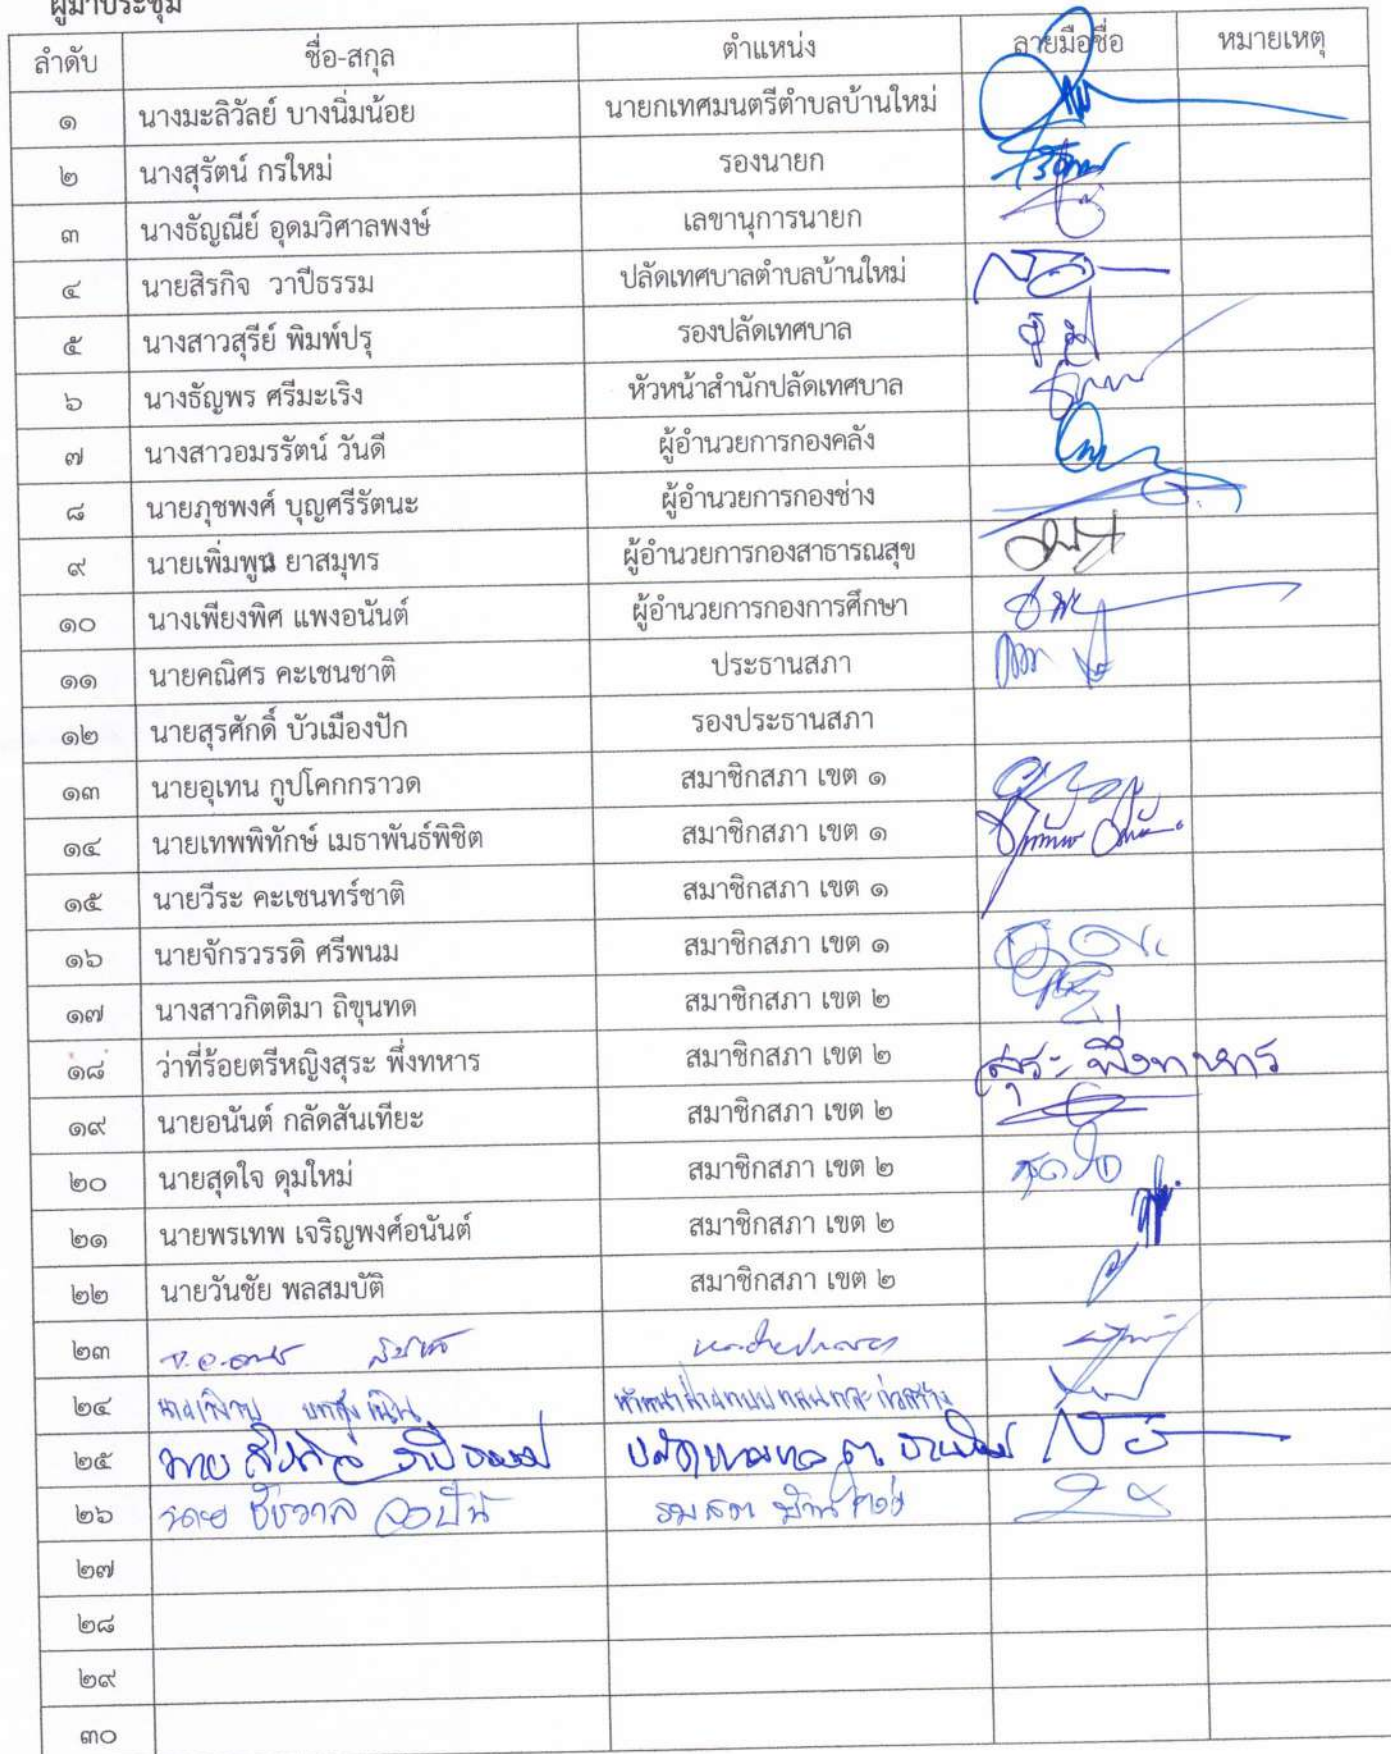 ผู้มาประชุม
ลำดับ ชื่อ-สกุล ตำแหน่ง ลายมือชื่อ หมายเหตุ
๑ นางมะลิวัลย์ บางนิ่มน้อย นายกเทศมนตรีตำบลบ้านใหม่
๒ นางสุรัตน์ กรใหม่ รองนายก
๓ นางธัญณีย์ อุดมวิศาลพงษ์ เลขานุการนายก
๔ นายสิรกิจ วาปีธรรม ปลัดเทศบาลตำบลบ้านใหม่
๕ นางสาวสุรีย์ พิมพ์ปรุ รองปลัดเทศบาล
๖ นางธัญพร ศรีมะเริง หัวหน้าสำนักปลัดเทศบาล
๗ นางสาวอมรรัตน์ วันดี ผู้อำนวยการกองคลัง
๘ นายภุชพงศ์ บุญศรีรัตนะ ผู้อำนวยการกองช่าง
๙ นายเพิ่มพูน ยาสมุทร ผู้อำนวยการกองสาธารณสุข
๑๐ นางเพียงพิศ แพงอนันต์ ผู้อำนวยการกองการศึกษา
๑๑ นายคณิศร คะเชนชาติ ประธานสภา
๑๒ นายสุรศักดิ์ บัวเมืองปัก รองประธานสภา
๑๓ นายอุเทน กูปโคกกราวด สมาชิกสภา เขต ๑
๑๔ นายเทพพิทักษ์ เมธาพันธ์พิชิต สมาชิกสภา เขต ๑
๑๕ นายวีระ คะเชนทร์ชาติ สมาชิกสภา เขต ๑
๑๖ นายจักรวรรดิ ศรีพนม สมาชิกสภา เขต ๑
๑๗ นางสาวกิตติมา ถิขุนทด สมาชิกสภา เขต ๒
๑๘ ว่าที่ร้อยตรีหญิงสุระ พึ่งทหาร สมาชิกสภา เขต ๒ สุระ พึ่งทหาร
๑๙ นายอนันต์ กลัดสันเทียะ สมาชิกสภา เขต ๒
๒๐ นายสุดใจ ดุมใหม่ สมาชิกสภา เขต ๒ สุดใจ
๒๑ นายพรเทพ เจริญพงศ์อนันต์ สมาชิกสภา เขต ๒
๒๒ นายวันชัย พลสมบัติ สมาชิกสภา เขต ๒
๒๓
๒๔
๒๕ นาย สิรกิจ วาปีธรรม
๒๖ นาย
๒๗
๒๘
๒๙
๓๐